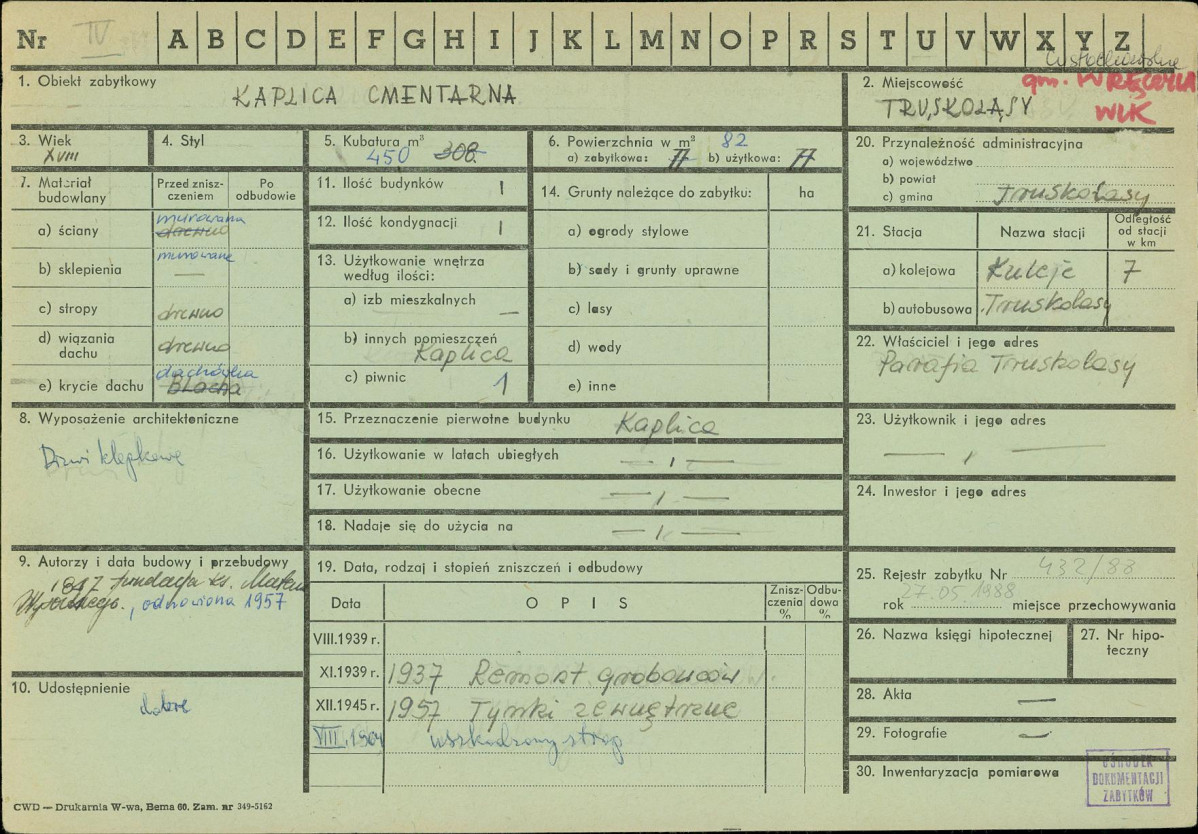 Nr IV A B C D E F G H I J K L M N O P R S T U V W X Y Z
1. Obiekt zabytkowy
KAPLICA CMENTARNA
2. Miejscowość
gm. WRĘCZYCA
WLK
TRUSKOLASY
3. Wiek
XVIII
4. Styl
5. Kubatura m³
450 308
6. Powierzchnia w m² 82
a) zabytkowa: 77 b) użytkowa: 77
20. Przynależność administracyjna
a) województwo
b) powiat
c) gmina Truskolasy
7. Materiał budowlany
Przed zniszczeniem
Po odbudowie
a) ściany murowana drewno
b) sklepienia murowane —
c) stropy drewno
d) wiązania dachu drewno
e) krycie dachu dachówka Blacha
11. Ilość budynków 1
12. Ilość kondygnacji 1
13. Użytkowanie wnętrza
według ilości:
a) izb mieszkalnych —
b) innych pomieszczeń
Kaplica
c) piwnic 1
14. Grunty należące do zabytku: ha
a) ogrody stylowe
b) sady i grunty uprawne
c) lasy
d) wody
e) inne
21. Stacja Nazwa stacji Odległość od stacji w km
a) kolejowa Kuleje 7
b) autobusowa Truskolasy
22. Właściciel i jego adres
Parafia Truskolasy
8. Wyposażenie architektoniczne
Drzwi klepkowe
15. Przeznaczenie pierwotne budynku Kaplica
16. Użytkowanie w latach ubiegłych — „ —
17. Użytkowanie obecne — „ —
18. Nadaje się do użycia na — „ —
23. Użytkownik i jego adres
— „ —
24. Inwestor i jego adres
9. Autorzy i data budowy i przebudowy
fundacja ks.
, odnowiona 1957
10. Udostępnienie
dobre
19. Data, rodzaj i stopień zniszczeń i odbudowy
Data OPIS Zniszczenia % Odbudowa %
VIII.1939 r.
XI.1939 r. 1937 Remont grobowców
XII.1945 r. 1957 Tynki zewnętrzne
uszkodzony strop
25. Rejestr zabytku Nr 432/88
27.05.1988
rok miejsce przechowywania
26. Nazwa księgi hipotecznej
27. Nr hipoteczny
28. Akta —
29. Fotografie —
30. Inwentaryzacja pomiarowa
OŚRODEK
DOKUMENTACJI
ZABYTKÓW
CWD — Drukarnia W-wa, Bema 60. Zam. nr 349-5162